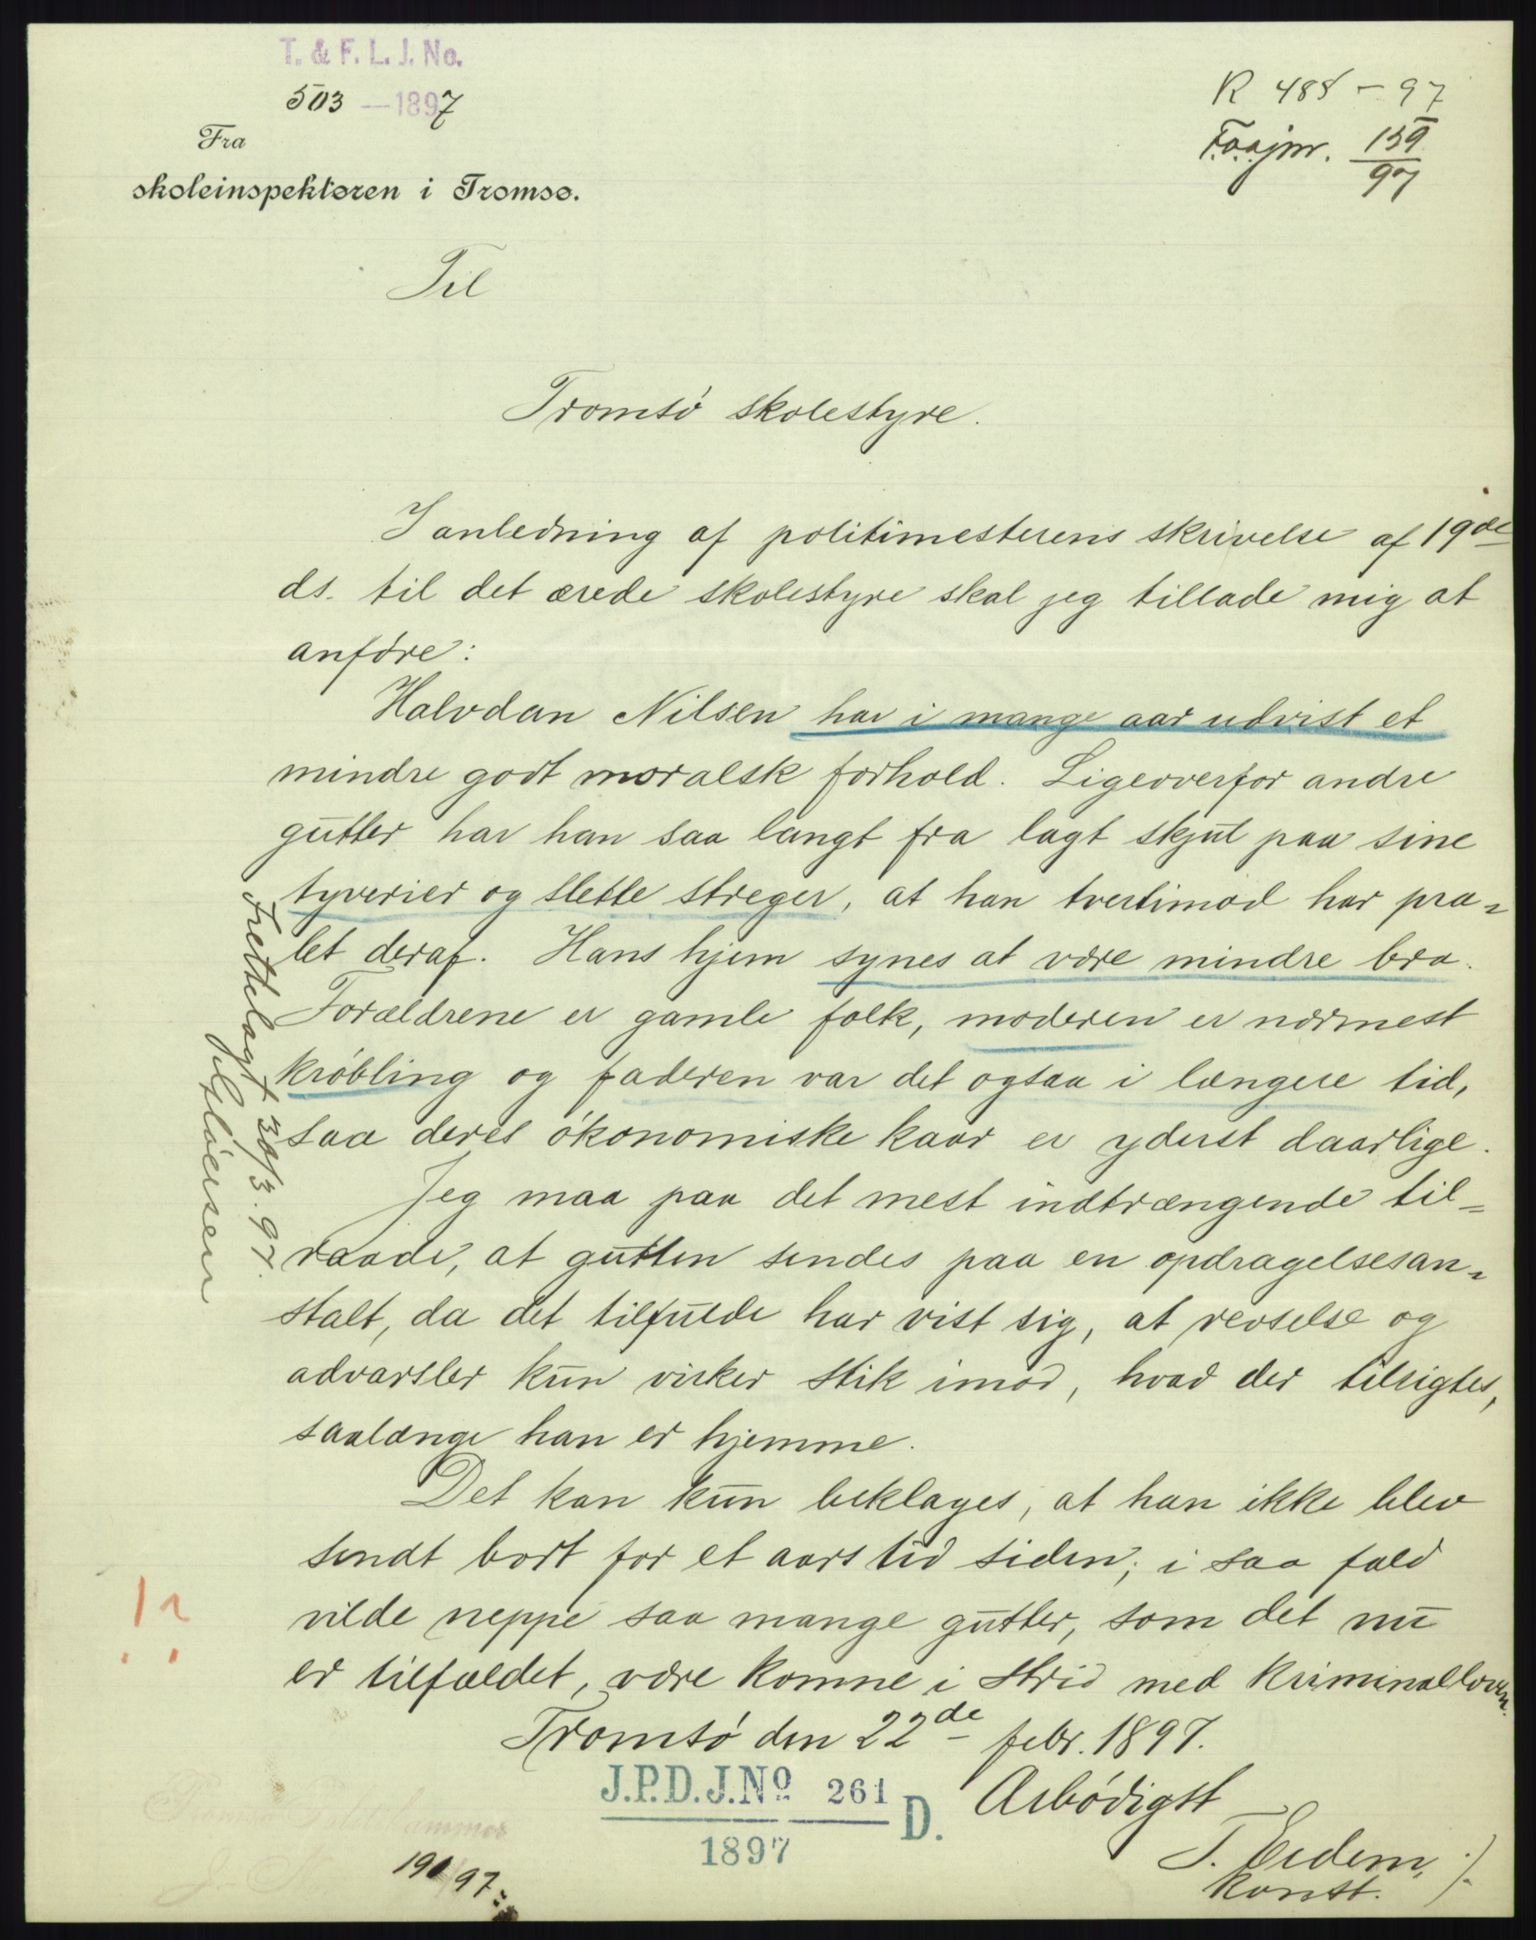 T. & F. L. J. No.
503 — 1897
R 488 - 97
Fra
skoleinspektøren i Tromsø.
159
97
Til
Tromsö skolestyre.
I anledning af politimesterens skrivelse af 19de
ds. til det ærede skolestyre skal jeg tillade mig at
anføre:
Halvdan Nilsen har i mange aar udvist et
mindre godt moralsk forhold. Ligeoverfor andre
gutter har han saa langt fra lagt skjul paa sine
tyverier og slette streger, at han tvertimod har pra-
let deraf. Hans hjem synes at være mindre bra.
Forældrene er gamle folk, moderen er nærmest
krøbling og faderen var det ogsaa i længere tid,
saa deres økonomiske kaar er yderst daarlige.
Jeg maa paa det mest indtrængende til-
raade, at gutten sendes paa en opdragelsesan-
stalt, da det tilfulde har vist sig, at revselse og
advarsler kun virker stik imod, hvad der tilsigtes,
saalænge han er hjemme.
Det kan kun beklages, at han ikke blev
sendt bort for et aars tid siden; i saa fald
vilde neppe saa mange gutter, som det nu
er tilfældet, være komne i strid med kriminalloven.
Tromsö den 22de febr. 1897.
Ærbödigst
T. Eidem,
konst.
Frettelagt 30/3. 97.
J.P.D. J.No 261 D.
1897
190/97